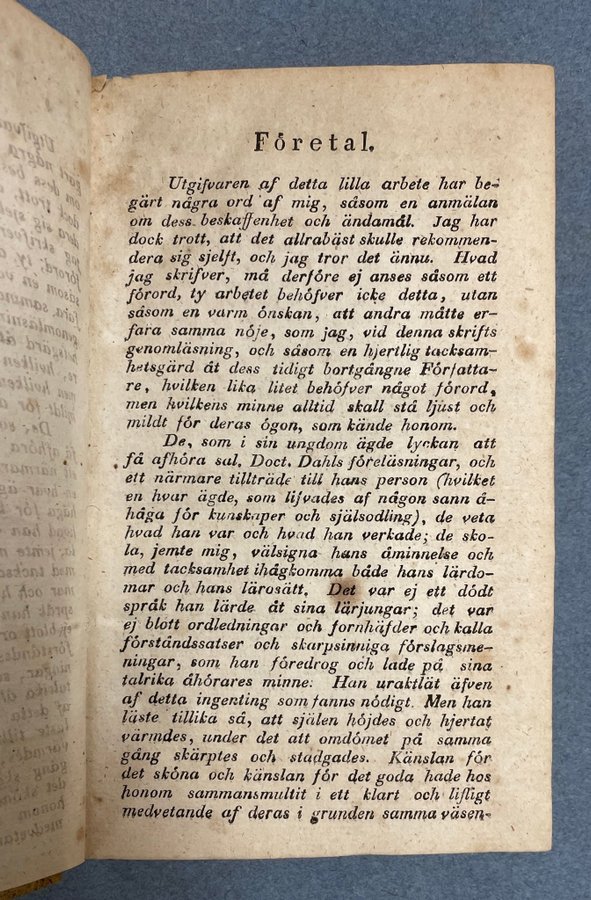 Företal.
Utgifvaren af detta lilla arbete har be-
gärt några ord af mig, såsom en anmälan
om dess beskaffenhet och ändamål. Jag har
dock trott, att det allrabäst skulle rekommen-
dera sig sjelft, och jag tror det ännu. Hvad
jag skrifver, må derföre ej anses såsom ett
förord, ty arbetet behöfver icke detta, utan
såsom en varm önskan, att andra måtte er-
fara samma nöje, som jag, vid denna skrifts
genomläsning, och såsom en hjertlig tacksam-
hetsgärd åt dess tidigt bortgångne Författa-
re, hvilken lika litet behöfver något förord,
men hvilkens minne alltid skall stå ljust och
mildt för deras ögon, som kände honom.
De, som i sin ungdom ägde lyckan att
få afhöra sal. Doct. Dahls föreläsningar, och
ett närmare tillträde till hans person (hvilket
en hvar ägde, som lifvades af någon sann å-
håga för kunskaper och själsodling), de veta
hvad han var och hvad han verkade; de sko-
la, jemte mig, välsigna hans åminnelse och
med tacksamhet ihågkomma både hans lärdo-
mar och hans lärosätt. Det var ej ett dödt
språk han lärde åt sina lärjungar; det var
ej blott ordledningar och fornhäfder och kalla
förståndssatser och skarpsinniga förslagsme-
ningar, som han föredrog och lade på sina
talrika åhörares minne: Han uraktlät äfven
af detta ingenting som fanns nödigt. Men han
läste tillika så, att själen höjdes och hjertat
värmdes, under det att omdömet på samma
gång skärptes och stadgades. Känslan för
det sköna och känslan för det goda hade hos
honom sammansmultit i ett klart och lifligt
medvetande af deras i grunden samma väsen-